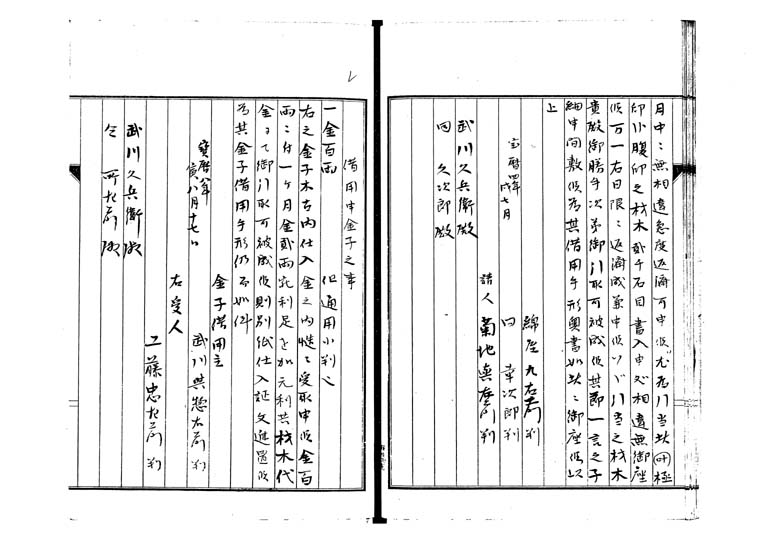 月中ニ無相違急度返済可申候尤為引当此(叶)極
印小腹卯之材木弐千石目書入申処相違無御座
候万一右日限ニ返済成兼申候ハヽ引当之材木
貴殿御勝手次第御引取可被成候其節一言之子
細申間敷候為其借用手形奥書如此ニ御座候以
上
宝暦四年
戌七月
綿屋九右衛門判
同 幸次郎判
請人 菊地與左衛門判
武川久兵衛殿
同 久次郎殿
借用申金子之事
一金百両 但通用小判也
右之金子木古内仕入金之内慥ニ受取申候金百
両ニ付一ヶ月金弐両宛利足を加元利共材木代
金ニて御引取可被成候則別紙仕入証文進置候
為其金子借用手形仍而如件
宝暦八年
寅八月十七日
金子借用主
武川與惣右衛門判
右受人
工藤忠左衛門判
武川久兵衛殿